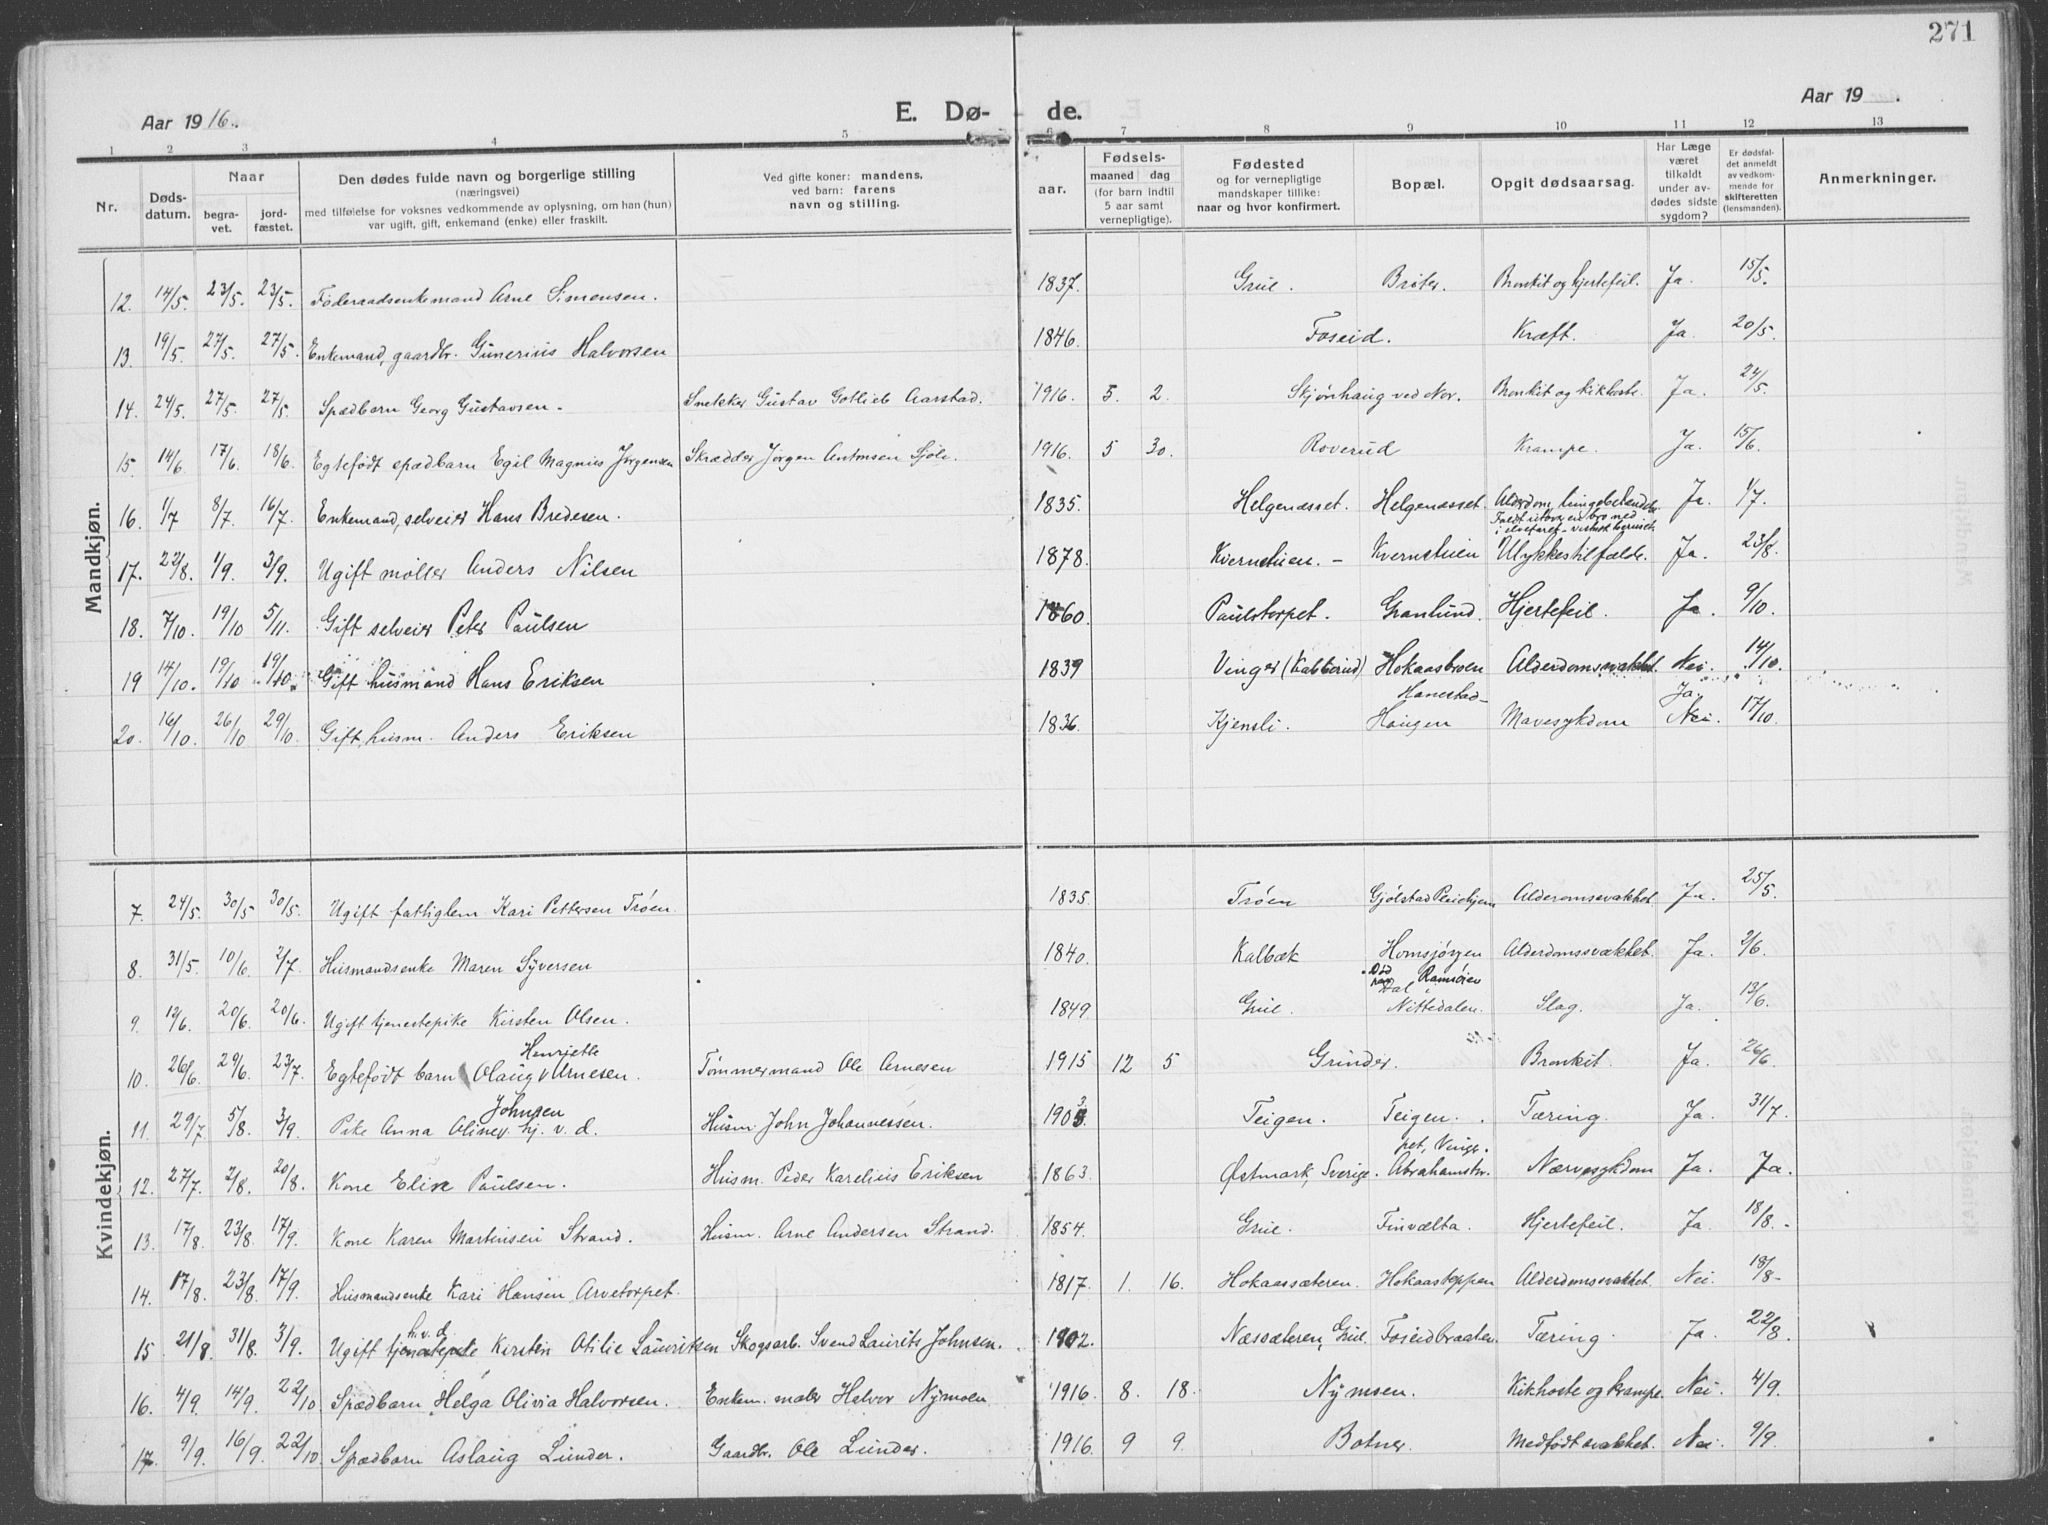 271
Aar 1916. E. Dø- de. Aar 19 .
1 2 3 4 5 6 7 8 9 10 11 12 13
Nr. Døds-datum. Naar begra-vet. jord-fæstet. Den dødes fulde navn og borgerlige stilling (næringsvei) med tilføielse for voksnes vedkommende av oplysning, om han (hun) var ugift, gift, enkemand (enke) eller fraskilt. Ved gifte koner: mandens, ved barn: farens navn og stilling. aar. Fødsels- maaned dag (for barn indtil 5 aar samt vernepligtige). Fødested og for vernepligtige mandskaper tillike: naar og hvor konfirmert. Bopæl. Opgit dødsaarsag. Har Læge været tilkaldt under av-dødes sidste sygdom? Er dødsfal-det anmeldt av vedkom-mende for skifteretten (lensmanden). Anmerkninger.
Mandkjøn.
12. 14/5. 23/5. 23/5. Føderaadsenkemand Arne Simensen. 1837. Grue. Brøter. Bronkit og hjertefeil. Ja. 15/5.
13 19/5. 27/5. 27/5. Enkemand, gaardbr. Gunerius Halvorsen 1846. Foseid. Kræft. Ja. 20/5.
14. 24/5. 27/5. 27/5. Spædbarn Georg Gustavsen. Snekker Gustav Gotlieb Aarstad. 1916. 5. 2. Skjønhaug ved Nor. Bronkit og kikhoste. Ja. 24/5.
15. 14/6. 17/6. 18/6. Egtefødt spædbarn Egil Magnus Jørgensen Skrædder Jørgen Antonsen Sjöli. 1916. 5 30. Roverud Krampe. Ja. 15/6.
16. 1/7 8/7. 16/7. Enkemand, selveier Hans Bredesen. 1835. Helgenæsset. Helgenæsset. Alderdom, lungebetændelse. Ja. 1/7.
Faldt utover en bro ned
i elvefaret - vistnok beruset
17. 22/8. 1/9. 3/9. Ugift møller Anders Nilsen 1878. Kvernstuen. - Kvernstuen Ulykkestilfælde. Ja. 23/8.
18. 7/10. 19/10 5/11. Gift selveier Peter Paulsen 1860. Paulstorpet. Granlund. Hjertefeil. Ja. 9/10.
19 14/10. 19/10 19/10. Gift husmand Hans Eriksen 1839 Vinger (Kabberud) Hokaasbroen Alderdomssvakhet. Nei. 14/10.
Hanestad- Ja.
20. 16/10. 26/10 29/10. Gift husm. Anders Eriksen 1836. Kjensli. Haugen Mavesykdom Nei. 17/10.
Kvindekjøn.
7. 24/5. 30/5 30/5. Ugift fattiglem Kari Pettersen Trøen. 1835. Trøen Gjølstad Pleiehjem Alderomssvakhet. Ja. 25/5.
8. 31/5. 10/6. 2/7. Husmandsenke Maren Syversen 1840. Kalbæk Homsjøgen Alderdomssvækket. Ja. 2/6.
Død paa Dal i Ramsøien
9. 12/6. 20/6. 20/6. Ugift tjenestepike Kirsten Olsen. 1849 Grue. Nittedalen. Slag. Ja. 13/6.
Henriette
10. 26/6. 29/6. 23/7. Egtefødt barn Olaug Arnesen. Tømmermand Ole Arnesen 1915 12 5 Grinder. Bronkit. Ja. 26/6.
Johnsen
11. 29/7 5/8. 3/9. Pike Anna Oline hj. v. d. Husm John Johannessen. 1903. Teigen. Teigen. Tæring. Ja. 31/7.
pet, Vinger.
12. 27/7. 2/8. 20/8. Kone Eline Paulsen. Husm. Peder Karelius Eriksen 1863. Østmark, Sverige. Abrahamstor. Nærvesykdom Ja. Ja.
13. 17/8. 23/8. 17/9. Kone Karen Martinsen Strand. Husm. Arne Andersen Strand. 1854. Grue. Finvælta. Hjertefeil. Ja. 18/8.
14. 17/8. 23/8. 17/9. Husmandsenke Kari Hansen Arvetorpet. 1817. 1. 16. Hokaassæteren. Hokaasteppen Alderdomssvakhet. Nei. 18/8
h. v. d.
15 21/8. 31/8. 3/9. Ugift tjenestepike Kirsten Otilie Lauritsen Skogsarb. Svend Laurits Johnsen. 1902. Næssæteren, Grue. Foseidbraaten. Tæring. Ja. 22/8.
16. 4/9. 14/9. 22/10 Spædbarn Helga Olivia Halvorsen. Enkem. maler Halvor Nymoen 1916. 8. 18. Nymoen. Kikhoste og krampe. Nei. 4/9.
17 9/9. 16/9. 22/10. Spædbarn Aslaug Lunder. Gaardbr. Ole Lunder. 1916. 9 9. Botner. Medfødt svakhet. Nei. 9/9.